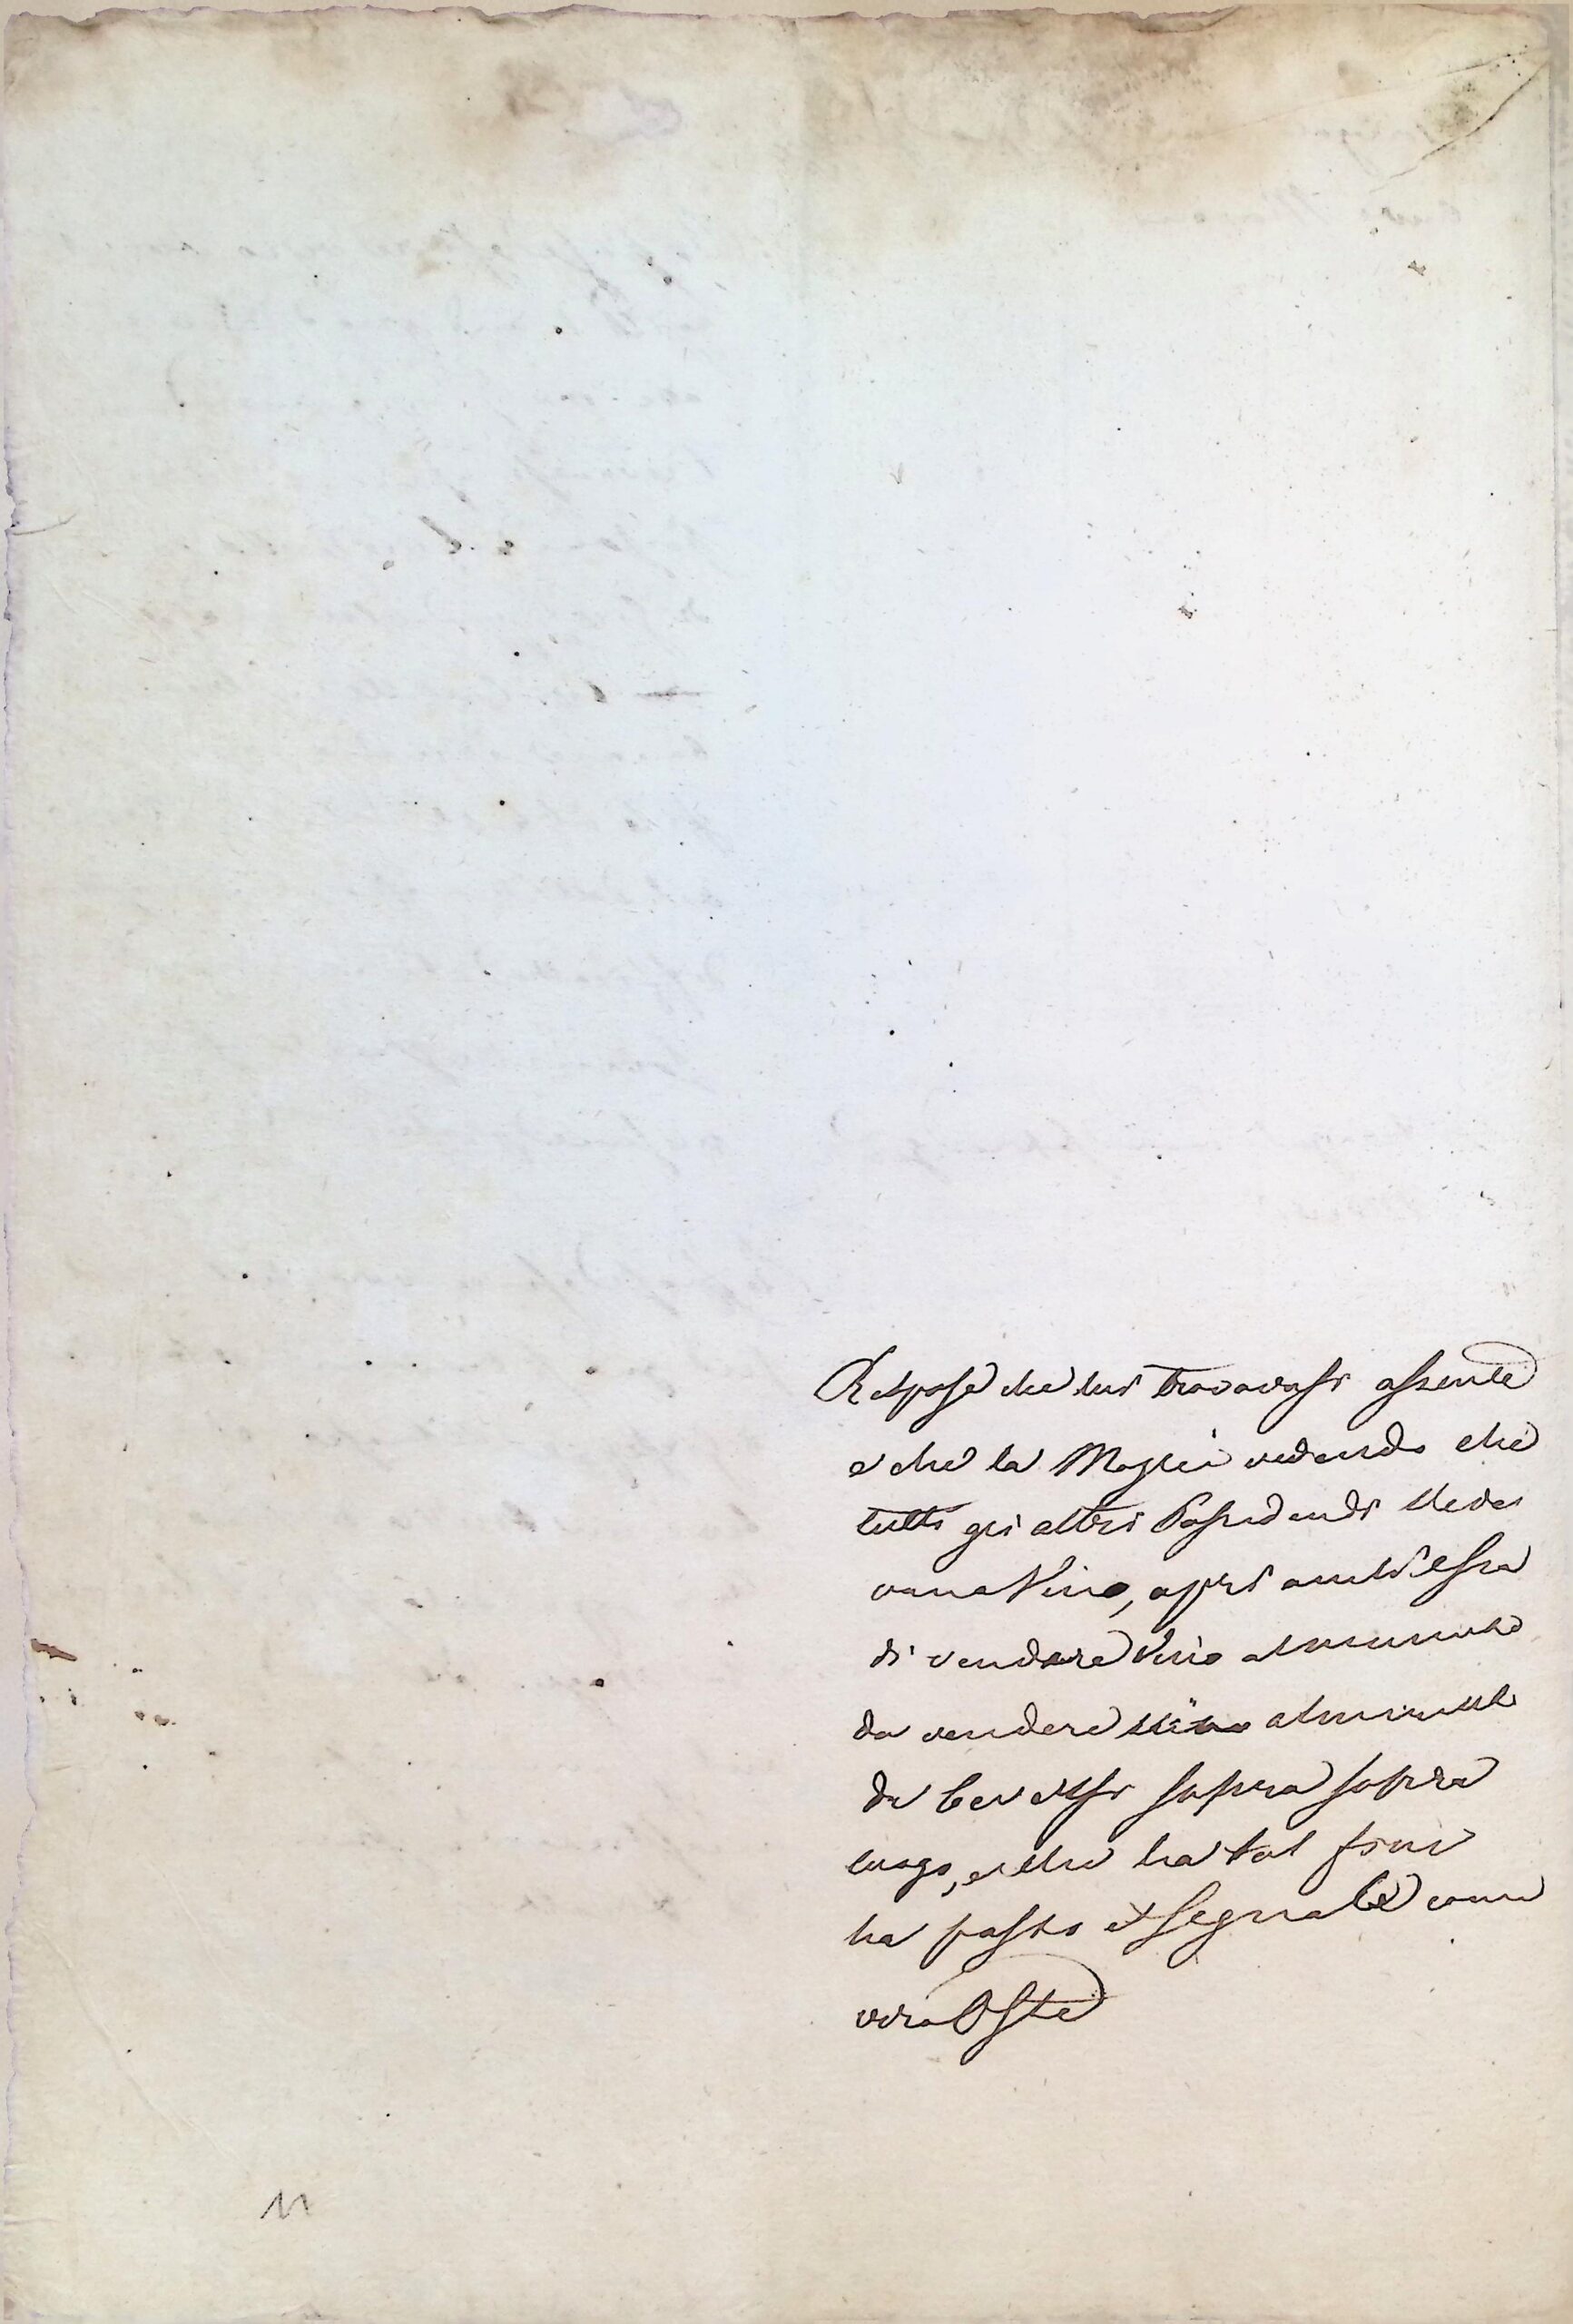 Rispose che lui trovavasi assente
e che la Moglie vedendo che
tutti gli altri Possidenti Ueva
vano Vino, aprì anch'essa
di vendere Vino al minuto
da vendere vino al minuto
da beversi sopra sopra
luogo, e che ha tal fine
ha posto il segnale come
vera Oste
11